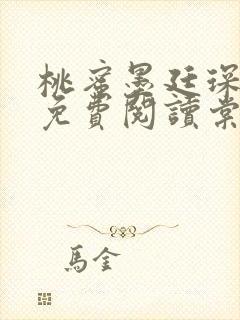 桃蜜墨廷深
免費閱讀棠
馬金